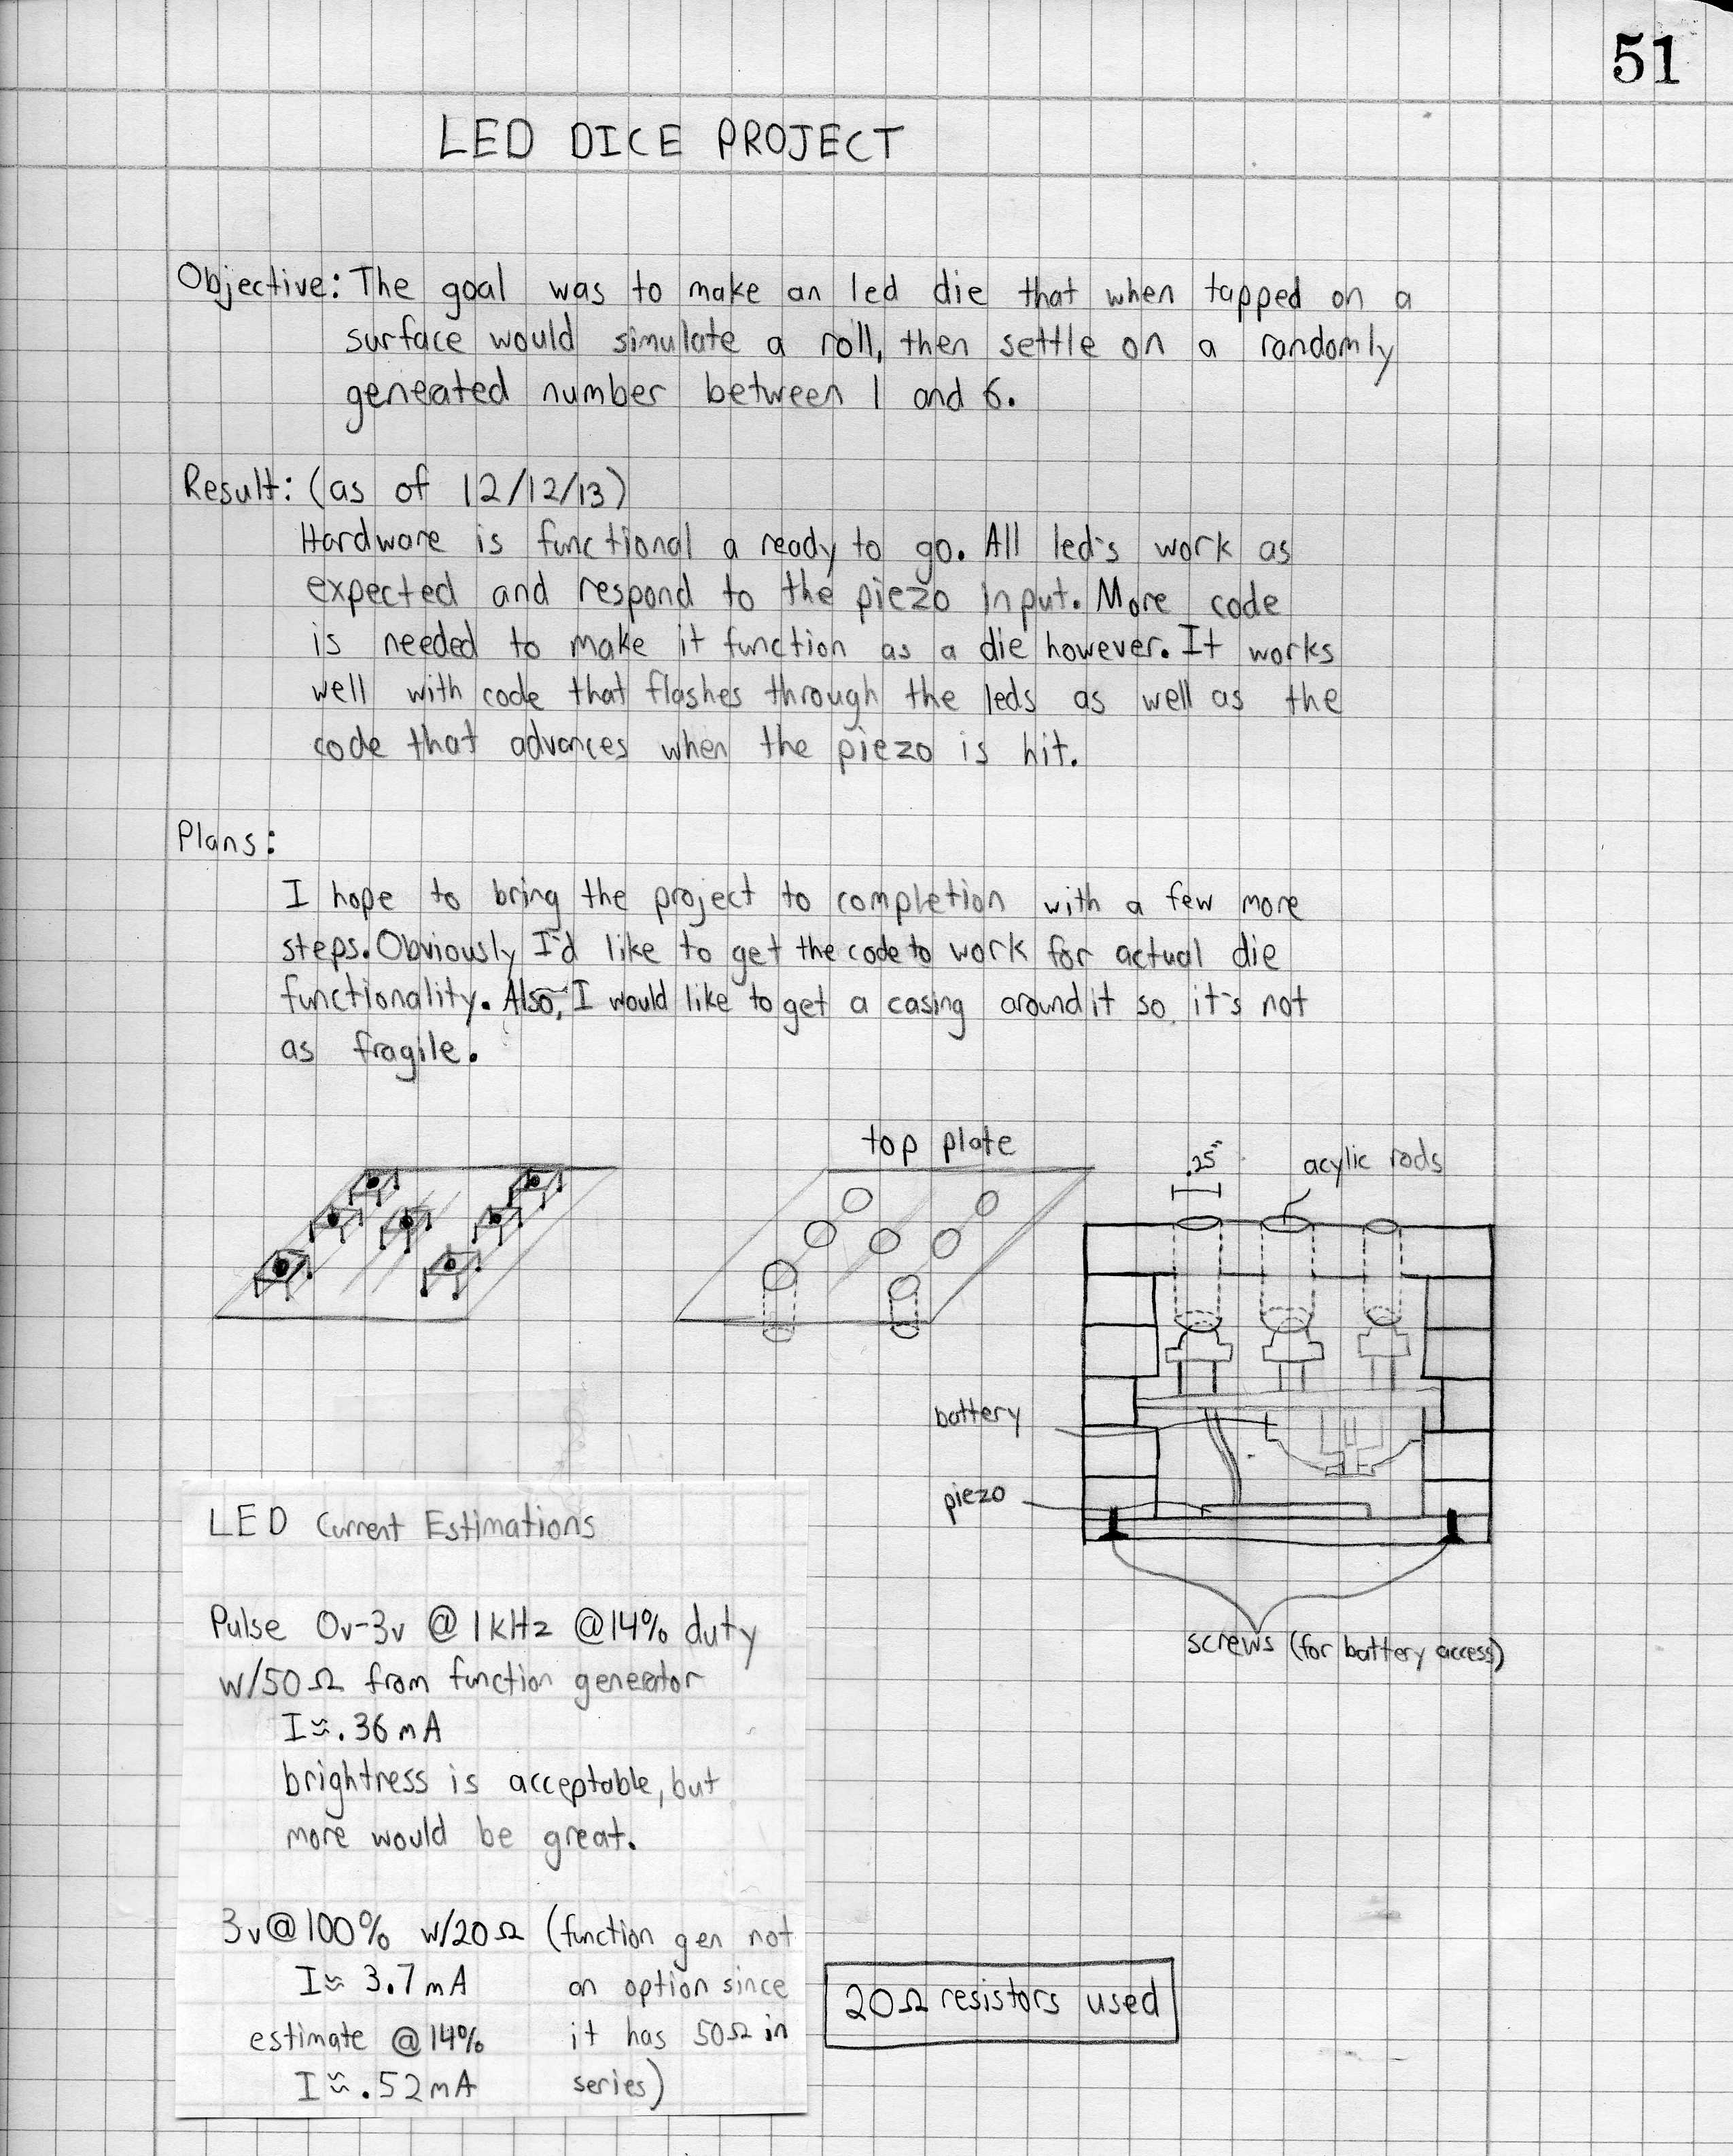 51
LED DICE PROJECT
Objective: The goal was to make an led die that when tapped on a
surface would simulate a roll, then settle on a randomly
geneated number between 1 and 6.
Result: (as of 12/12/13)
Hardware is functional a ready to go. All led's work as
expected and respond to the piezo input. More code
is needed to make it function as a die however. It works
well with code that flashes through the leds as well as the
code that advances when the piezo is hit.
Plans:
I hope to bring the project to completion with a few more
steps. Obviously I'd like to get the code to work for actual die
functionality. Also, I would like to get a casing around it so it's not
as fragile.
top plate
.25"
acylic rods
battery
piezo
screws (for battery access)
LED Current Estimations
Pulse 0v-3v @ 1kHz @14% duty
w/50Ω from function generator
I≈.36mA
brightness is acceptable, but
more would be great.
3v@100% w/20Ω (function gen not
I≈ 3.7mA an option since
estimate @14% it has 50Ω in
I≈.52mA series)
20Ω resistors used